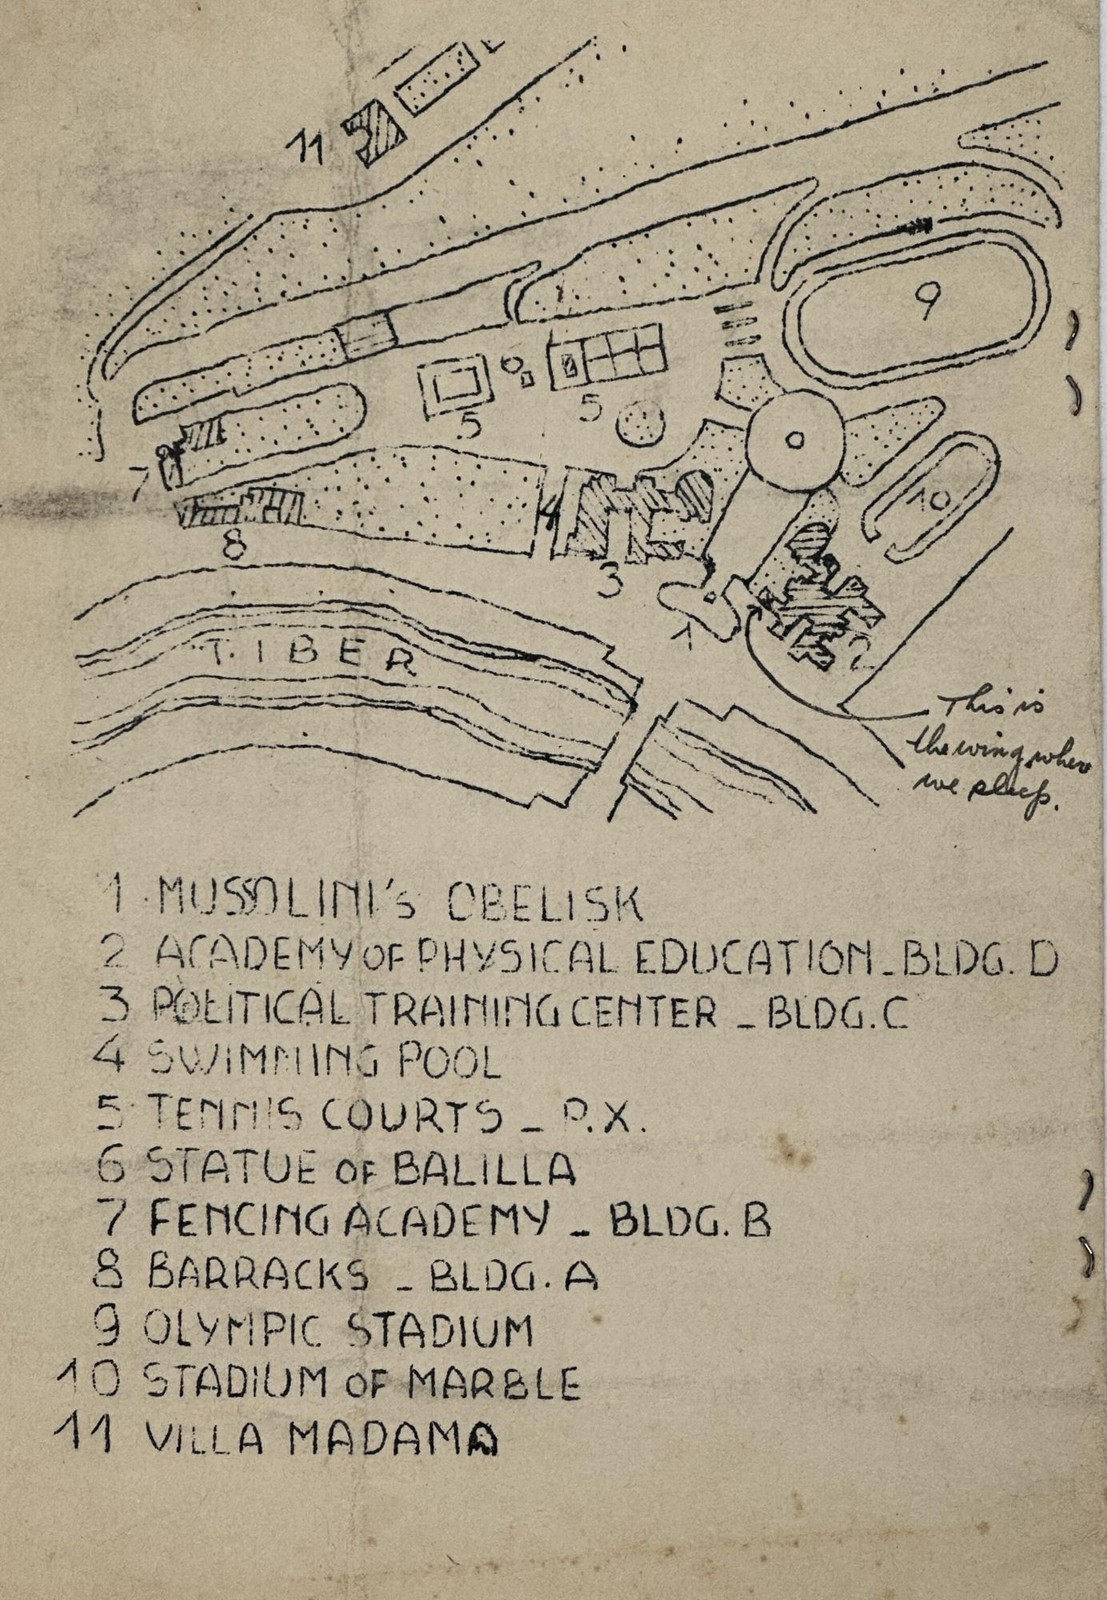 11
9
5
5
10
7
8
4
3
1
2
TIBER
This is
the wing where
we sleep.
1 MUSSOLINI's OBELISK
2 ACADEMY OF PHYSICAL EDUCATION - BLDG. D
3 POLITICAL TRAINING CENTER - BLDG. C
4 SWIMMING POOL
5 TENNIS COURTS - P.X.
6 STATUE OF BALILLA
7 FENCING ACADEMY - BLDG. B
8 BARRACKS - BLDG. A
9 OLYMPIC STADIUM
10 STADIUM OF MARBLE
11 VILLA MADAMA